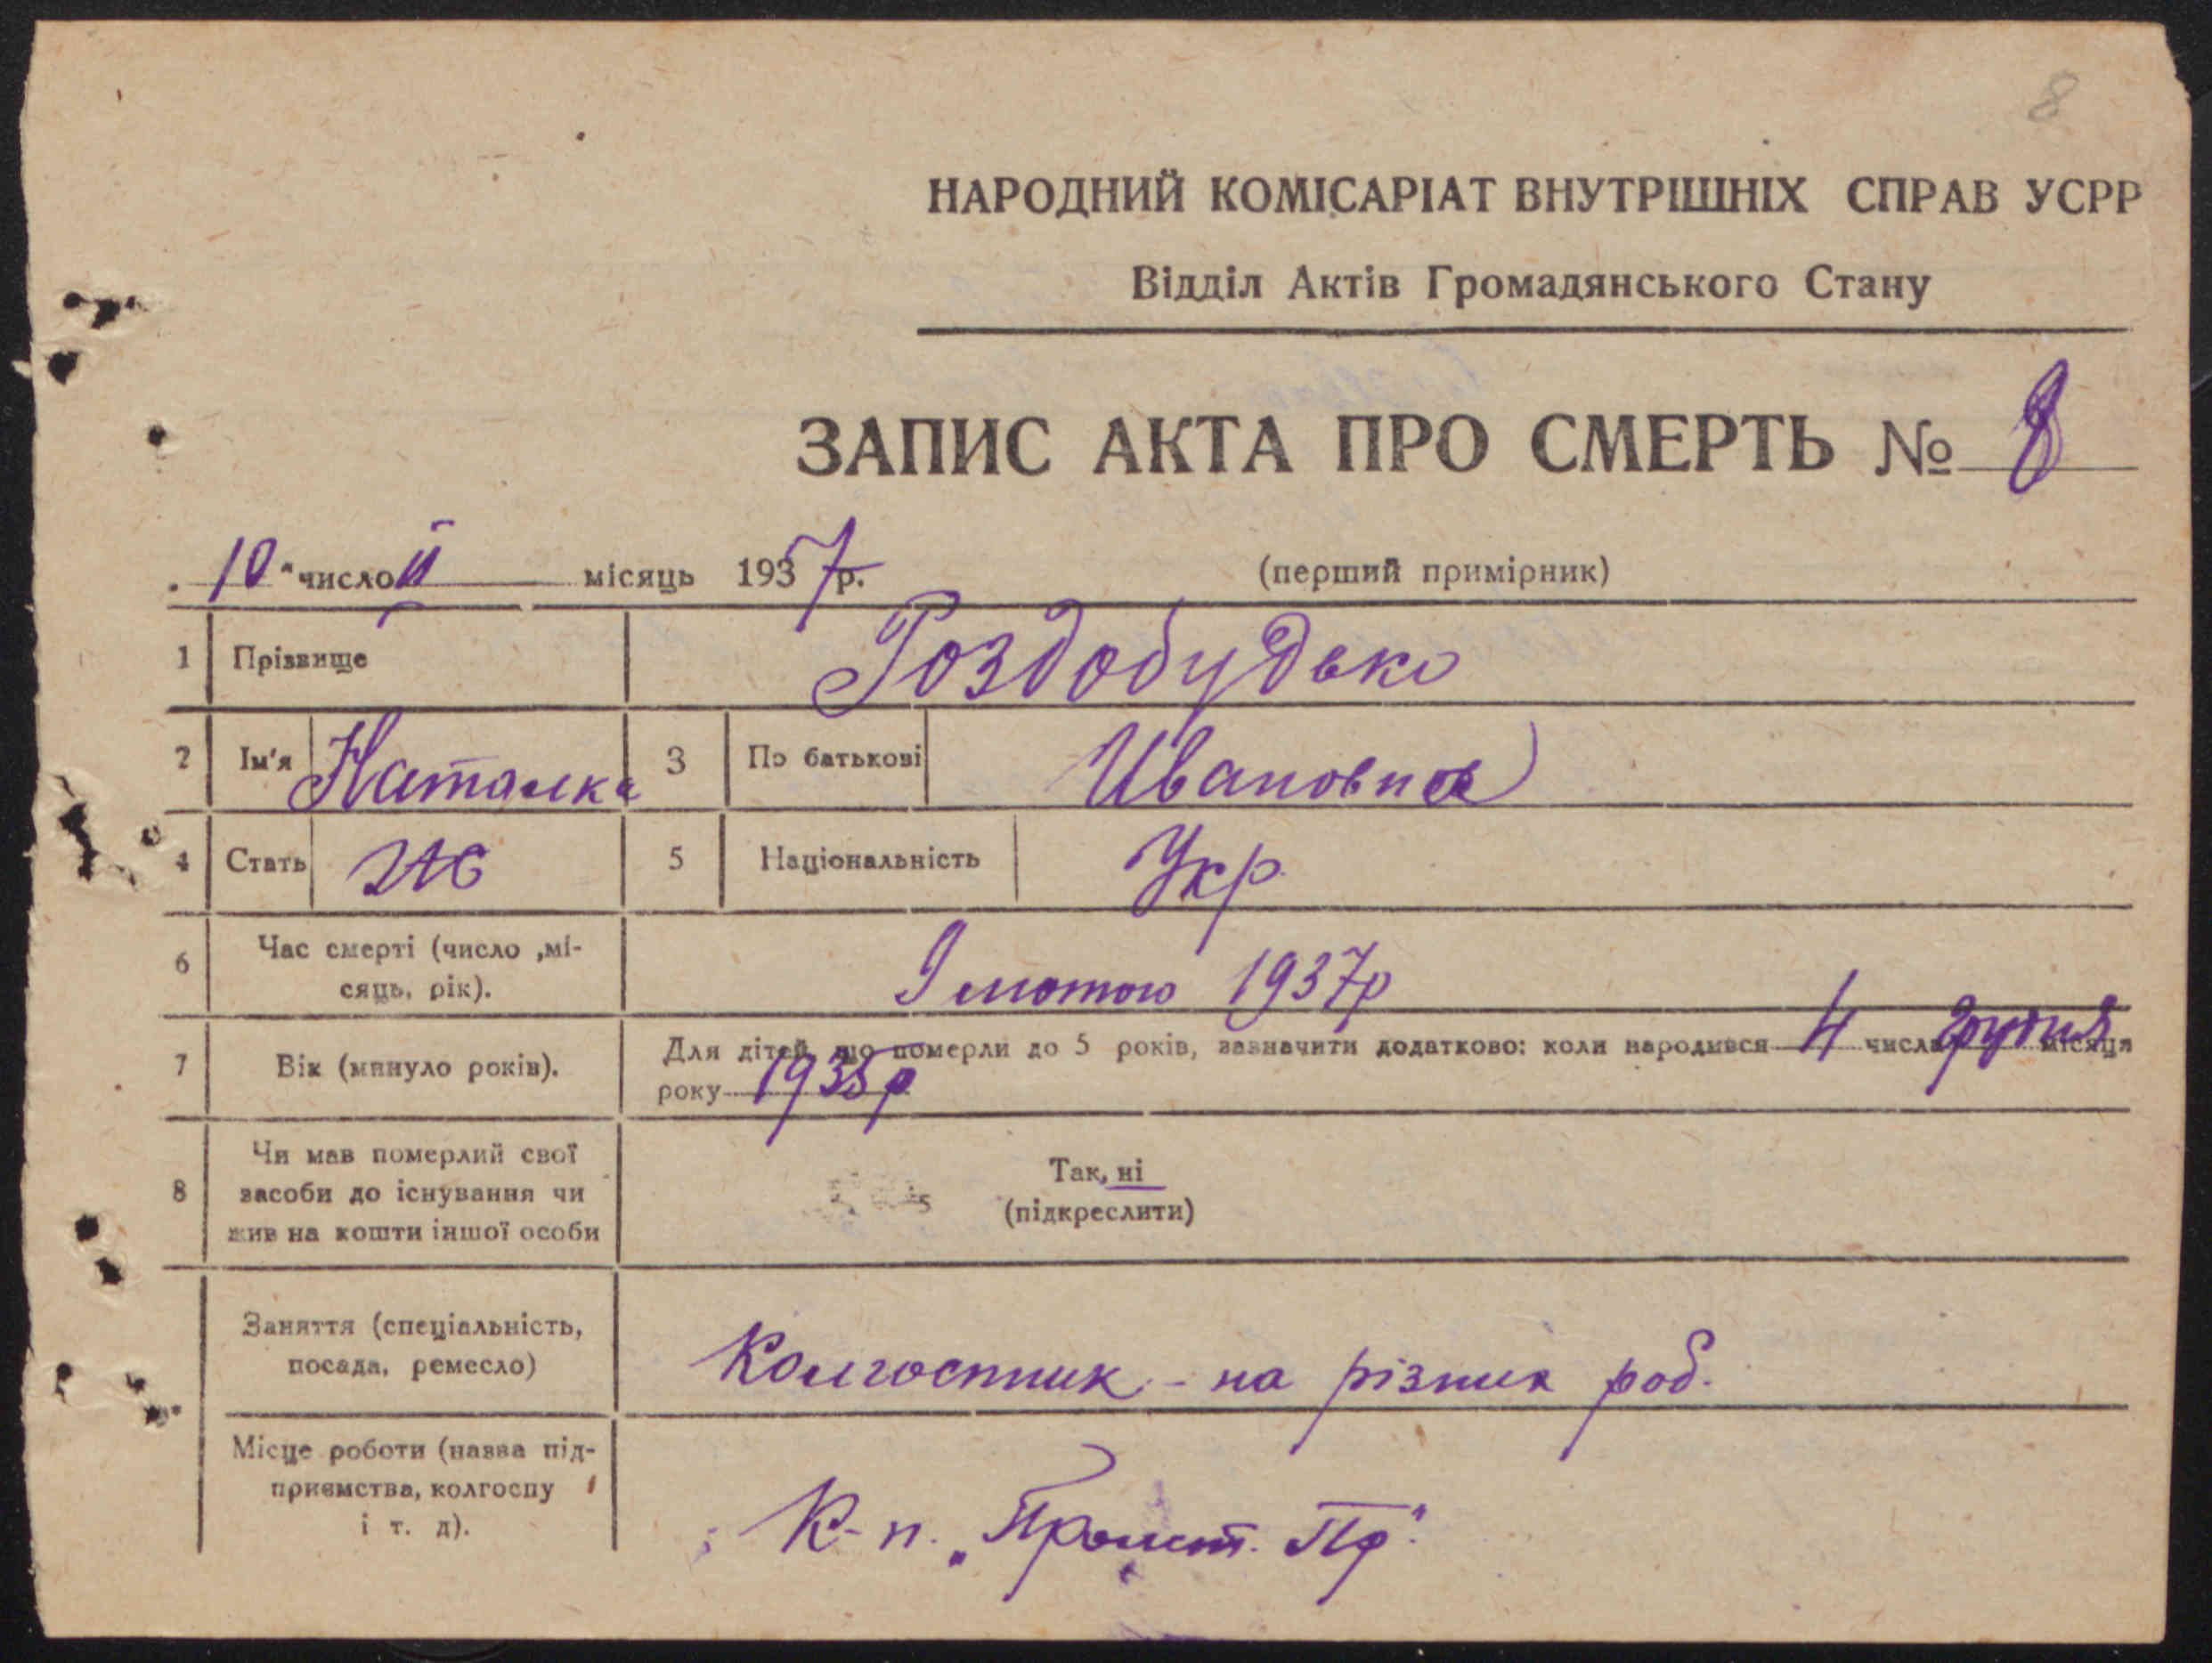 8
НАРОДНИЙ КОМІСАРІАТ ВНУТРІШНІХ СПРАВ УСРР
Відділ Актів Громадянського Стану
ЗАПИС АКТА ПРО СМЕРТЬ № 8
„10“ число II місяць 1937 р. (перший примірник)
1 Прізвище Роздобудько
2 Ім'я Наталка 3 По батькові Ивановна
4 Стать Ж 5 Національність Укр.
6 Час смерті (число ,мі-
сяць, рік). 9 лютого 1937р
7 Вік (минуло років). Для дітей, що померли до 5 років, зазначити додатково: коли народився 4 числа грудня місяця
року 1935р
8 Чи мав померлий свої
засоби до існування чи
жив на кошти іншої особи
Так, ні
(підкреслити)
Заняття (спеціальність,
посада, ремесло) Колгоспник - на різних роб.
Місце роботи (назва під-
приємства, колгоспу
і т. д). К-п. „Пролет. Пр."